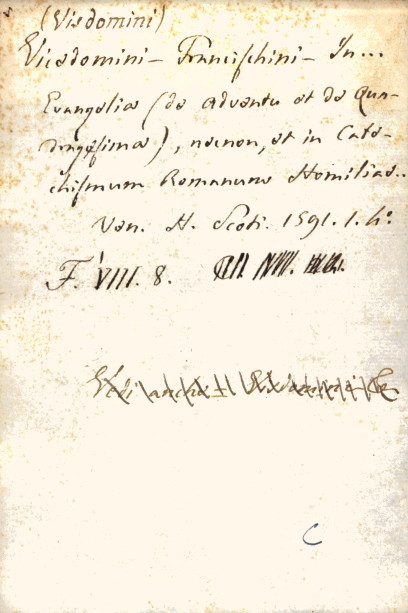 (Visdomini)
Vicedomini - Francischini - In...
Evangelia (de Adventu et de Qua-
dragesima), necnon, et in Cate-
chismum Romanum Homiliae..
Ven. H. Scoti. 1591. 1. 4°
F. VIII. 8.
Vedi anche
C